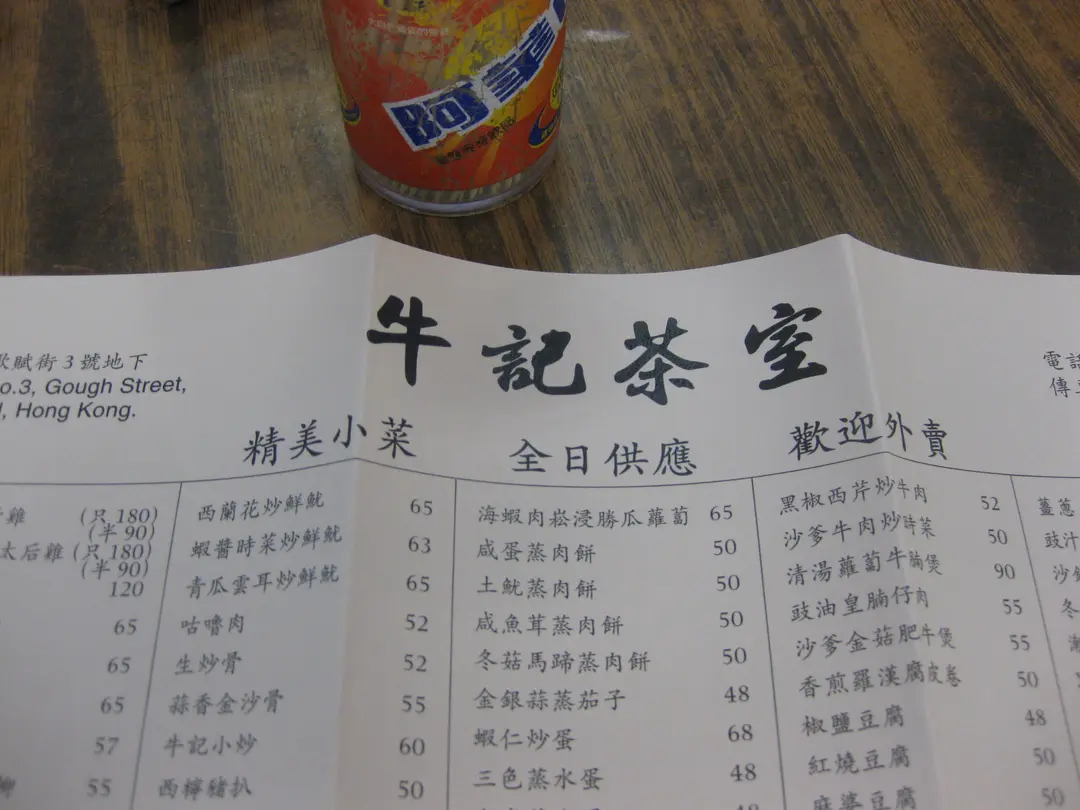 阿華田
牛記茶室
歌賦街3號地下
No.3, Gough Street,
Hong Kong.
電話
精美小菜
全日供應
歡迎外賣
雞 (只 180)
(半 90)
太后雞 (只 180)
(半 90)
120
65
65
65
57
55
西蘭花炒鮮魷 65
蝦醬時菜炒鮮魷 63
青瓜雲耳炒鮮魷 65
咕嚕肉 52
生炒骨 52
蒜香金沙骨 55
牛記小炒 60
西檸豬扒 50
海蝦肉崧浸勝瓜蘿蔔 65
咸蛋蒸肉餅 50
土魷蒸肉餅 50
咸魚茸蒸肉餅 50
冬菇馬蹄蒸肉餅 50
金銀蒜蒸茄子 48
蝦仁炒蛋 68
三色蒸水蛋 48
48
黑椒西芹炒牛肉 52
沙爹牛肉炒時菜 50
清湯蘿蔔牛腩煲 90
豉油皇腩仔肉 55
沙爹金菇肥牛煲 55
香煎羅漢腐皮卷 50
椒鹽豆腐 48
紅燒豆腐 50
麻婆豆腐 50
薑蔥
豉汁
沙
冬